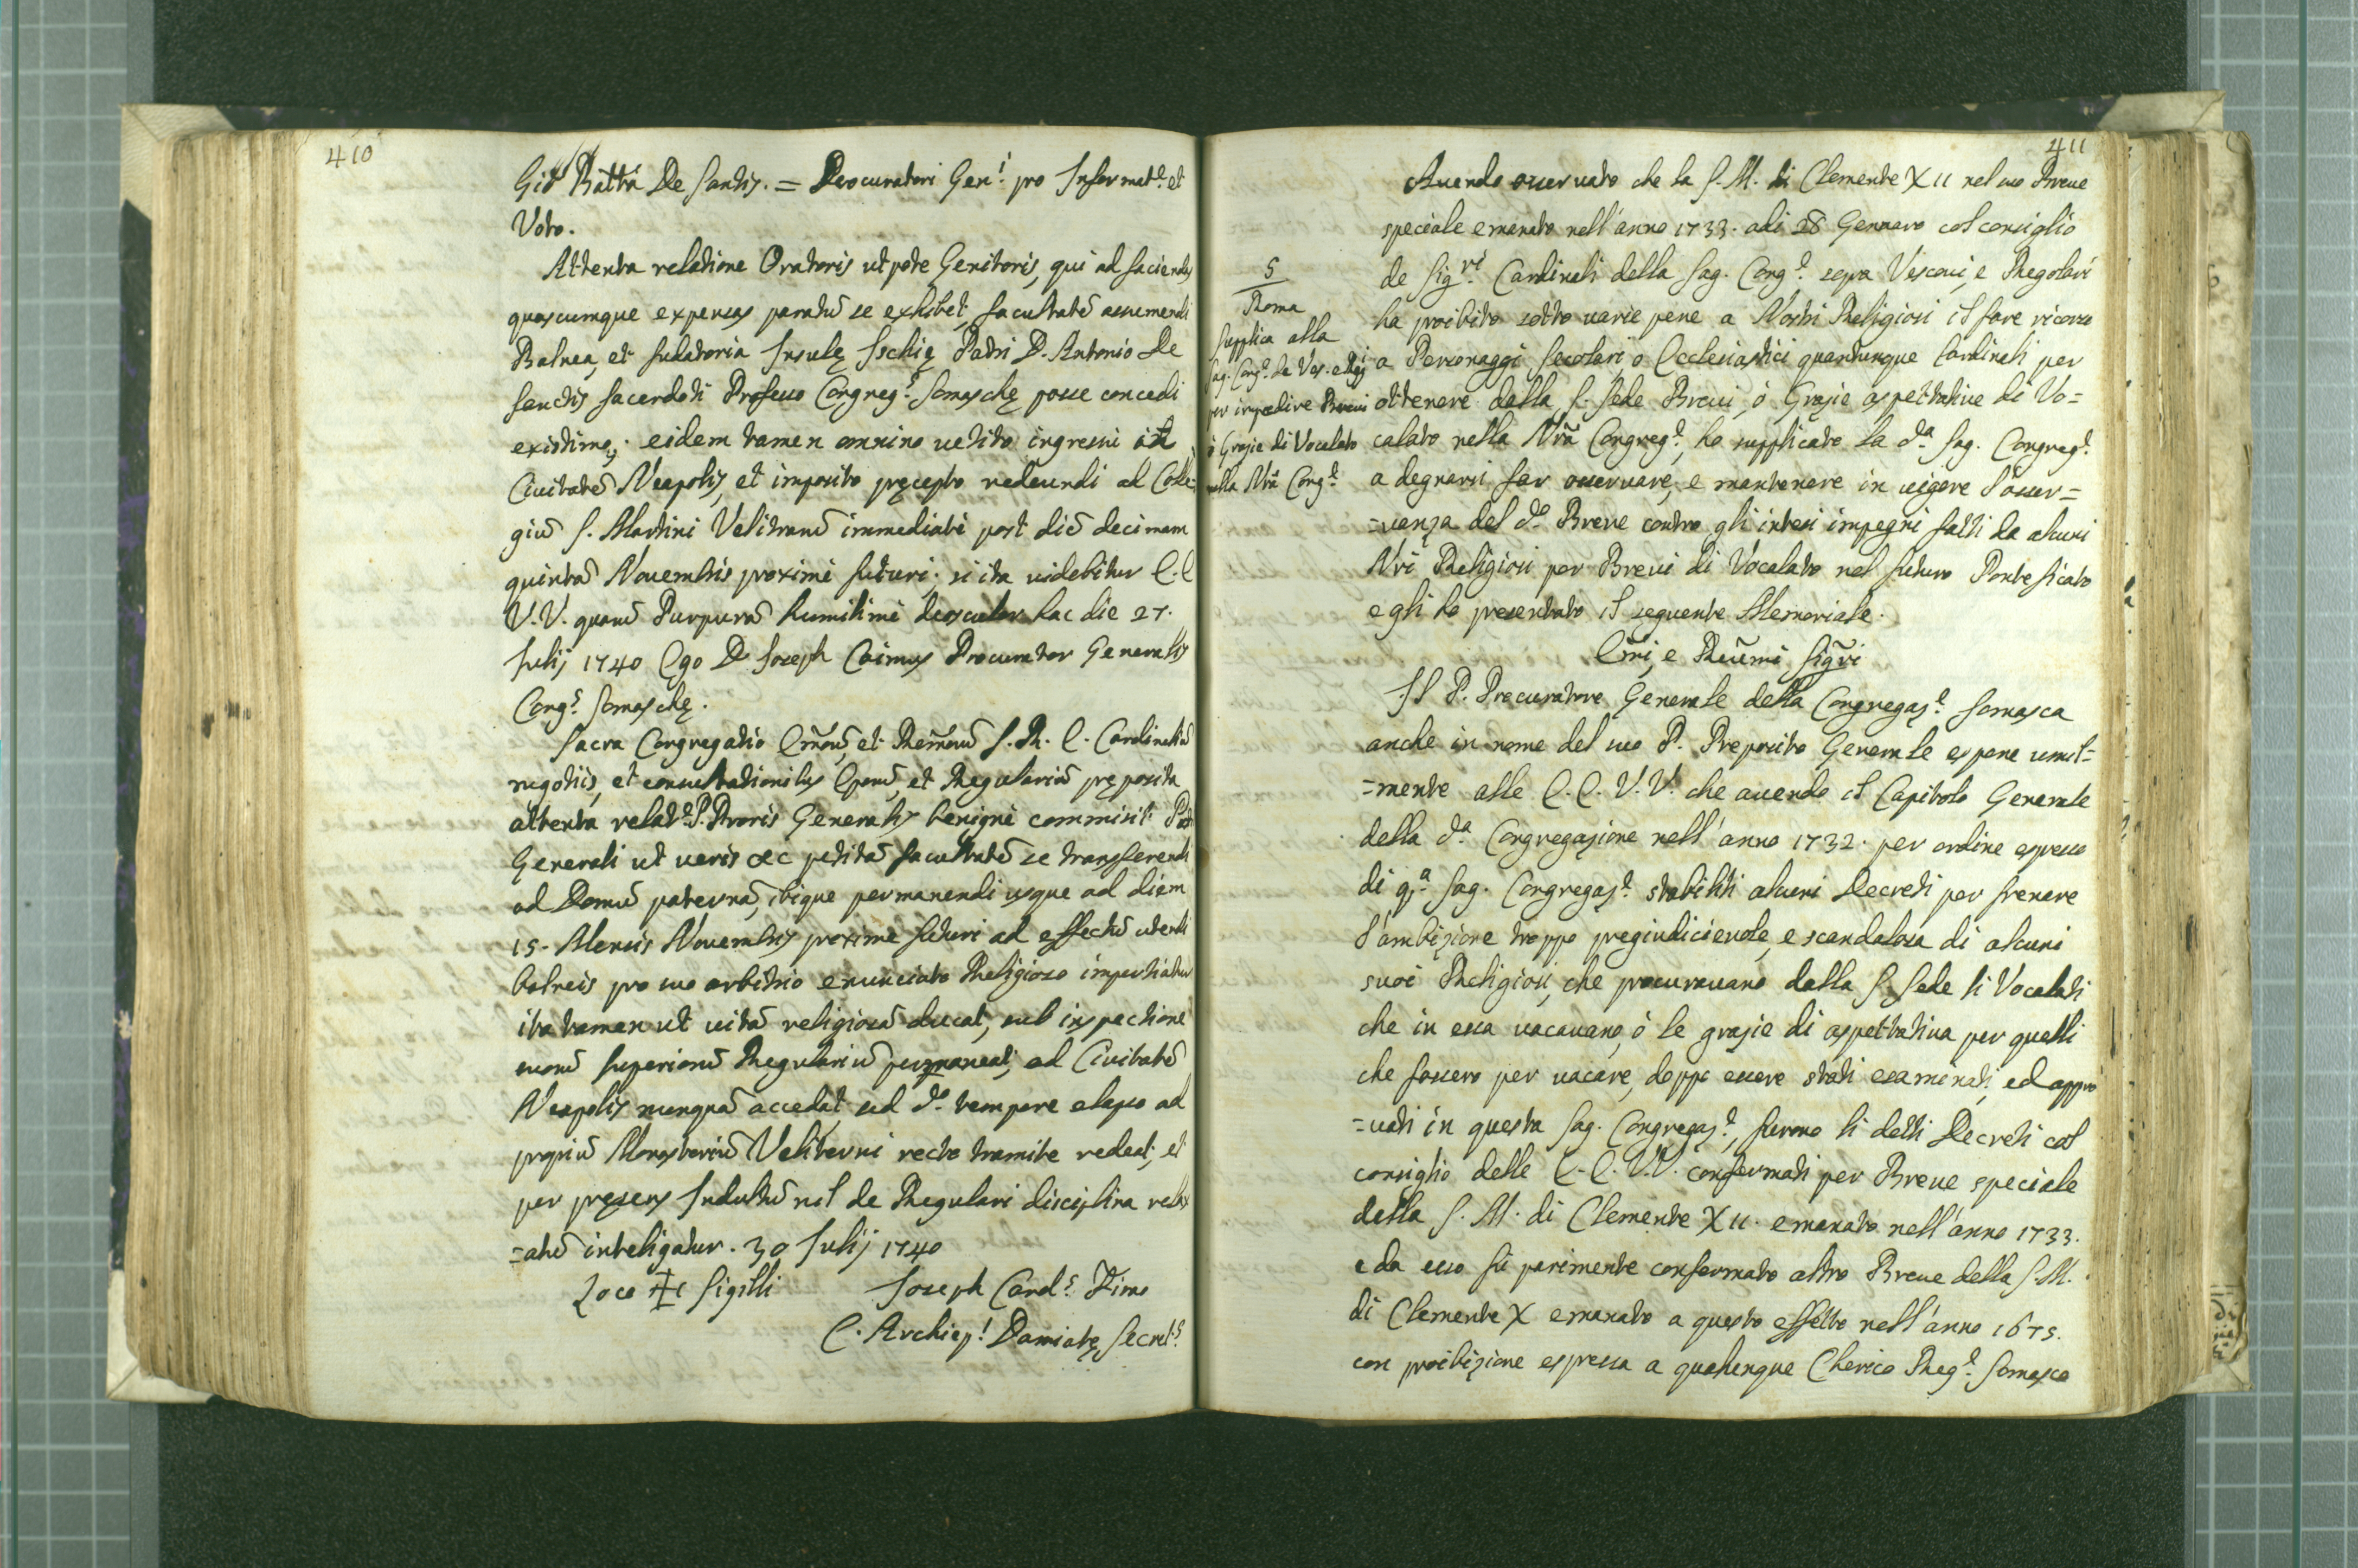 410
Gio Batta De Santis. = Procuratori Gen.l pro Informat.e et
Voto.
Attenta relatione Oratoris utpote Genitoris, qui ad faciendas
quascumque expensas paratū se exhibet, facultatē assumendi
Balnea, et sudatoria Insulę Ischię Patri D. Antonio De
Sanctis Sacerdoti Professo Congreg.s Somaschę posse concedi
existimo; eidem tamen omnino vetito ingressu in
Civitatē Neapolis, et imposito pręcepto redeundi ad Colle-
giū S. Martini Velitranū immediatè post diē decimam
quintā Novembris proximè futuri. si ita videbitur E.E
V.V. quarū Purpurā humilimè deosculor hac die 27.
Julij 1740 Ego D. Joseph Caimus Procurator Generalis
Cong.s Somaschę.
Sacra Congregatio Em̃orū, et Rem̃orū S. R. E. Cardinaliū
negotiis, et consultationibus Eporū, et Regulariū pręposita
attenta relat.e P. Proris Generalis benignè commisit P.
Generali ut veris &c petitā facultatē se transferendi
ad Domū paternā, ibique permanendi usque ad diem
15. Mensis Novembris proximè futuri ad effectū utendi
balneis pro suo arbitrio enunciato Religioso impertiatur
ita tamen ut vitā religiosā ducat, sub inspectione
suorū Superiorū Regulariū permaneat, ad Civitatē
Neapolis nunquā accedat, sed d.o tempore elapso ad
propriū Monasteriū Veliterni recto tramite redeat, et
per pręsens Indultū nil de Regulari disciplina relax
=atū inteligatur. 30 Julij 1740
Loco ✠ Sigilli Joseph Card.s Firao
C. Archiep.s Damiatę Secret.s
411
Avendo osservato che la S. M. di Clemente XII nel suo Breve
speciale emanato nell'anno 1733. adi 28 Gennaro col consiglio
de Sig.ri Cardinali della Sag. Cong.e sopra Vescovi, e Regolari
ha proibito sotto varie pene a Nostri Religiosi il fare ricorso
a Personaggi Secolari, o Ecclesiastici quantunque Cardinali, per
ottenere dalla S. Sede Brevi, ò Grazie aspettative di Vo=
calato nella Nrã Congreg.e, ha supplicato la d.a Sag. Congreg.e
a degnarsi far osservare, e mantenere in vigore l'osser=
=vanza del d.o Breve contro gli intesi impegni fatti da alcuni
Nri Religiosi per Brevi di Vocalato nel futuro Pontificato
e gli ha presentato il seguente Memoriale.
5
Roma
Supplica alla
Sag. Cong.e de Ves. e Reg.i
per impedire Brevi
ò Grazie di Vocalato
nella Nrã Cong.e
Em̃i, e Reum̃i Sig̃ri
Il P. Procuratore Generale della Congregaz.e Somasca
anche in nome del suo P. Preposito Generale espone umil=
=mente alle E.E. V.V. che avendo il Capitolo Generale
della d.a Congregazione nell'anno 1732. per ordine espresso
di q.a Sag. Congregaz.e stabiliti alcuni Decreti per frenare
l'ambizione troppo pregiudicievole, e scandalosa di alcuni
suoi Religiosi, che procuravano dalla S. Sede li Vocalati
che in essa vacavano, ò le grazie di aspettativa per quelli
che fossero per vacare, doppo essere stati esaminati, ed appro
=vati in questa Sag. Congregaz.e, furono li detti Decreti col
consiglio delle E.E. V.V. confermati per Breve speciale
della S. M. di Clemente XII. emanato nell'anno 1733.
e da esso fù parimente confermato altro Breve della S. M.
di Clemente X emanato a questo effetto nell'anno 1675.
con proibizione espressa a qualunque Cherico Reg.e Somasco